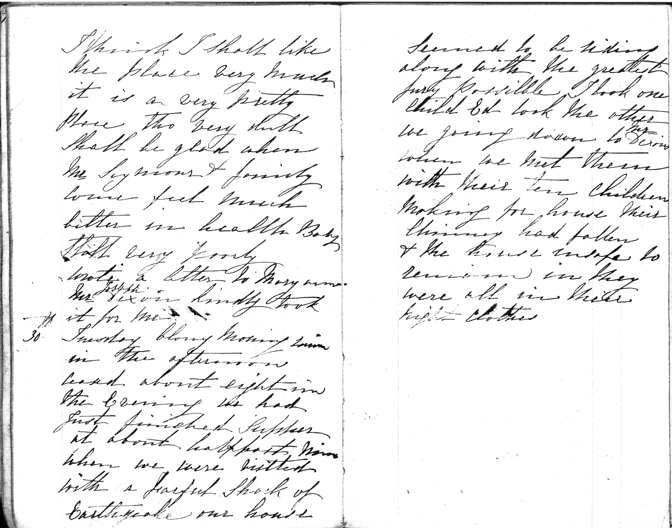 I think I shall like
the place very much
it is a very pretty
place tho very dull
Shall be glad when
Mr Seymour & family
come feel much
better in health Baby
Still very poorly
wrote a letter to Mary anne
Mr Joseph Dixon kindly took
it for me
30th Tuesday blowy Morning
in the afternoon
ceased about eight in
the Evening we had
Just finished Supper
at about half past Nine
when we were visited
with a fearful Shock of
Earthquake our house
Seemed to be riding
along with the greatest
fury possible I took one
child Ed took the other
we going down to Mr Dixons
when we met them
with their ten children
Making for house their
Chimney had fallen
& the house unsafe to
remain in they
were all in their
night clothes